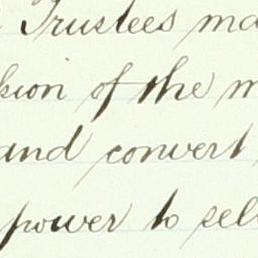 Trustees ma
sion of the m
and convert
power to sell